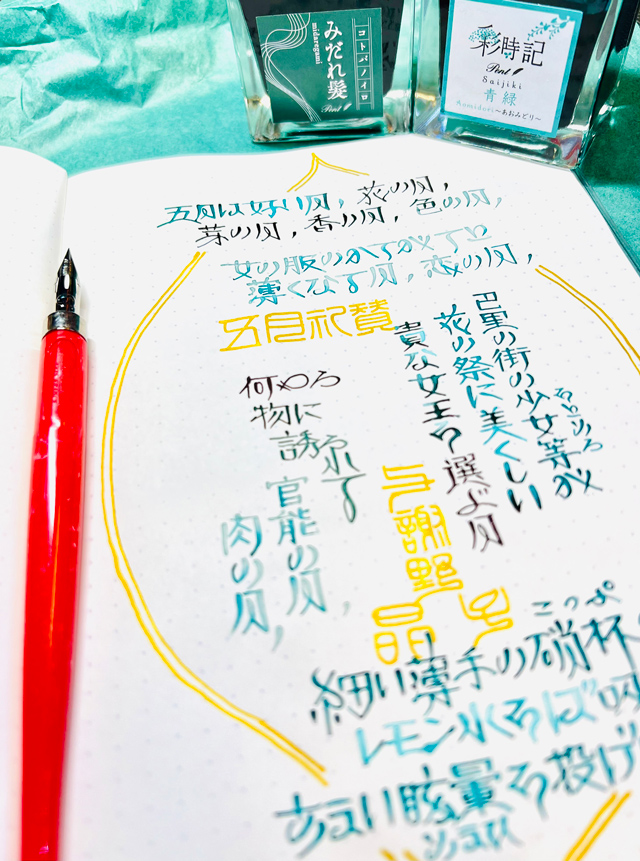 コトバノイロ
みだれ髪
midaregami
Pent
彩時記
Pent
Saijiki
青緑
Aomidori〜あおみどり〜
五月は好い月，花の月，
芽の月，香の月，色の月，
女の服のかろがろと
薄くなる月，恋の月，
五月礼賛
巴里の街の少女等が
をとめら
花の祭に美くしい
貴な女王を選ぶ月
与謝野
晶子
何やら
物に
誘られて
官能の月，
肉の月，
こっぷ
細い薄手の硝杯
レモン水をば吸
あまい眩暈を投げ